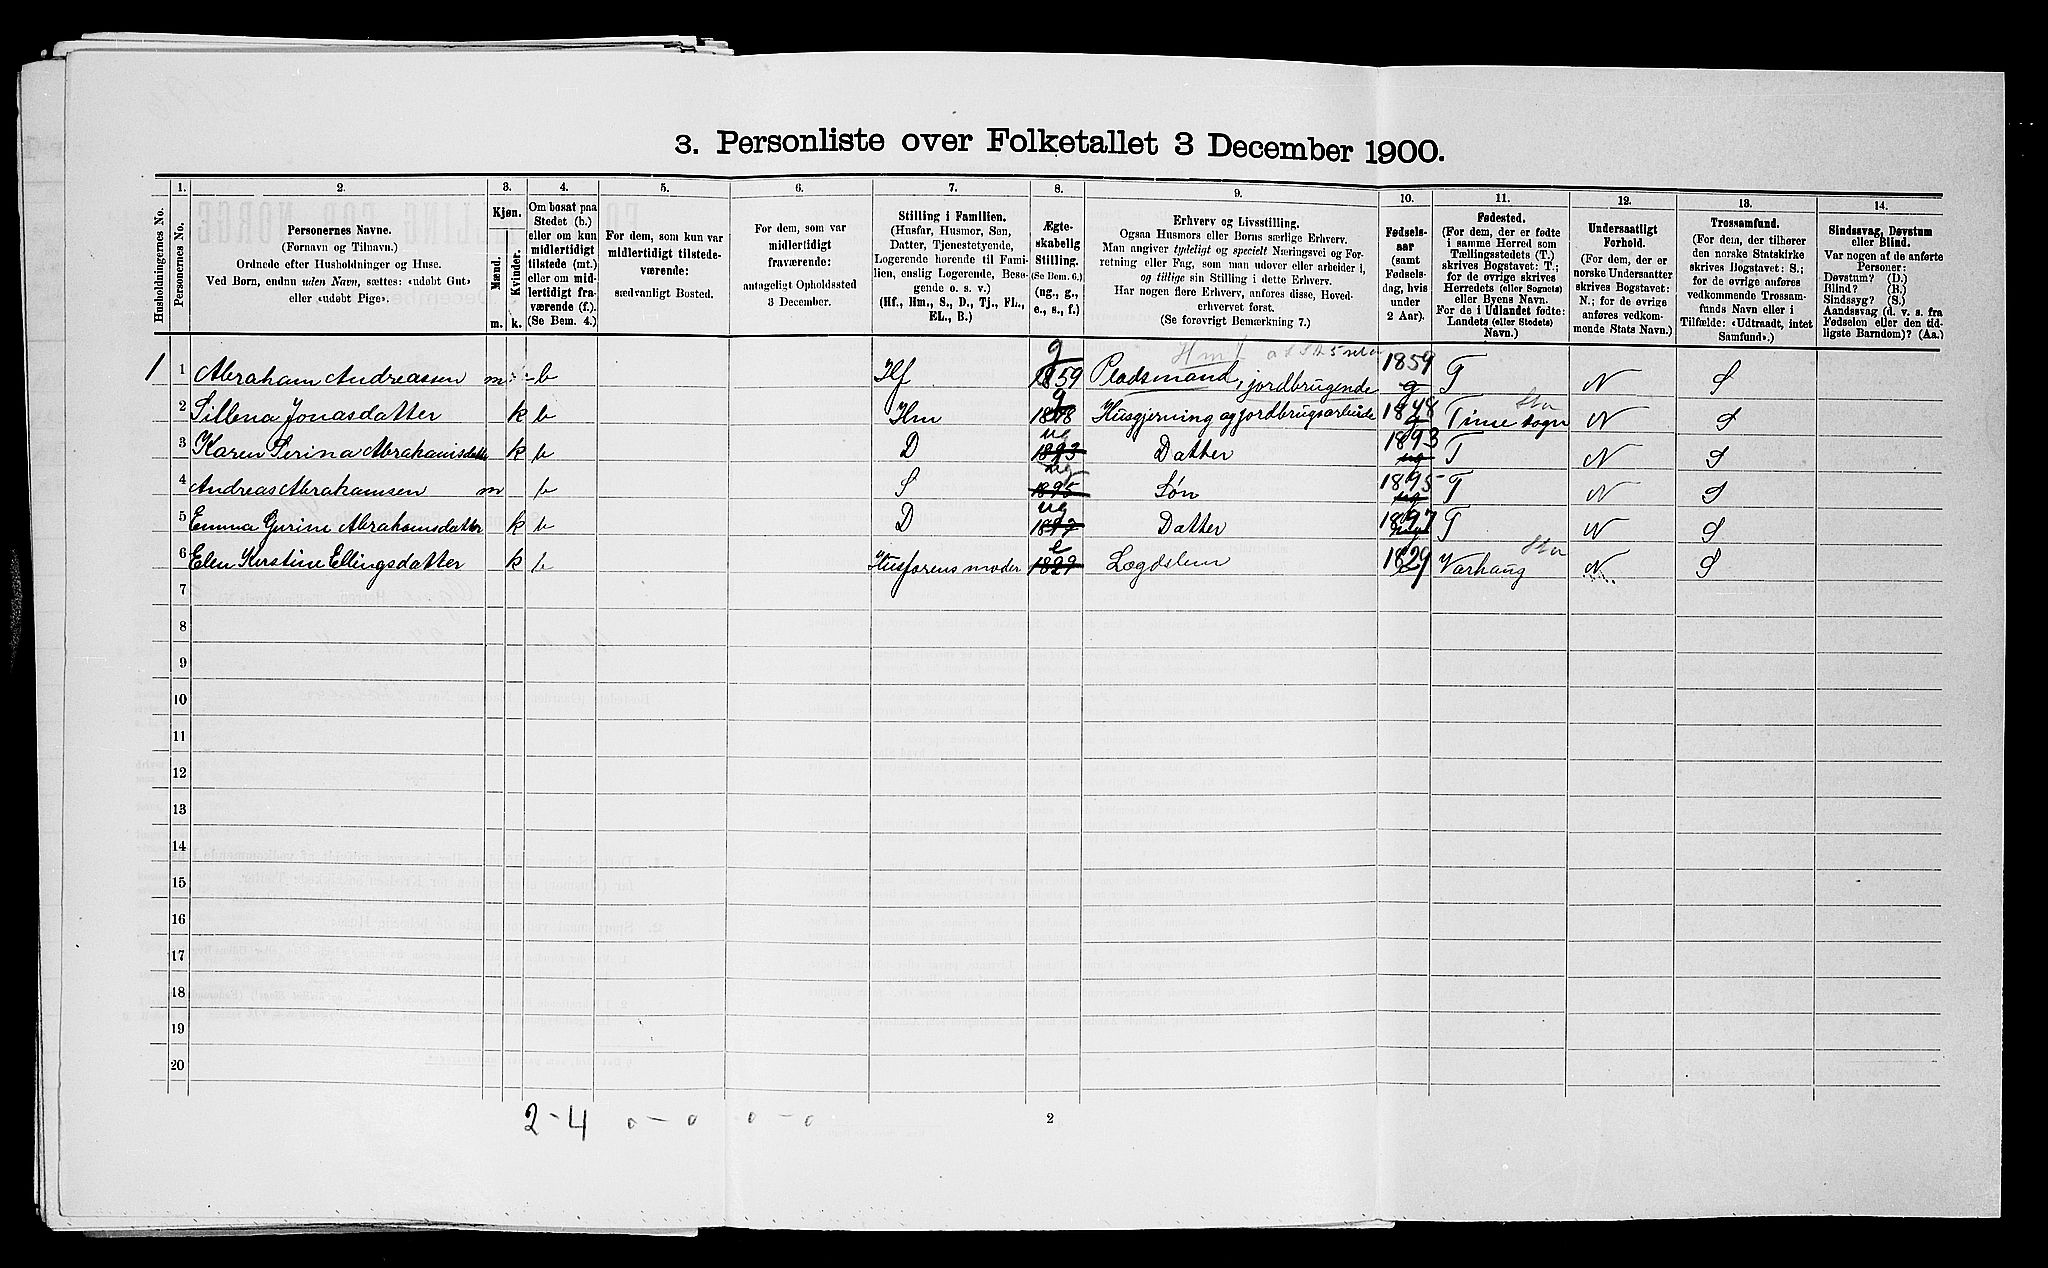 3. Personliste over Folketallet 3 December 1900.
Husholdningernes No.
1.
Personernes No.
2.
Personernes Navne.
(Fornavn og Tilnavn.)
Ordnede efter Husholdninger og Huse.
Ved Børn, endnu uden Navn, sættes: «udøbt Gut»
eller «udøbt Pige».
3.
Kjøn.
Mænd.
Kvinder.
m.
k.
4.
Om bosat paa
Stedet (b.)
eller om kun
midlertidigt
tilstede (mt.)
eller om mid-
lertidigt fra-
værende (f.).
(Se Bem. 4.)
5.
For dem, som kun var
midlertidigt tilstede-
værende:
sædvanligt Bosted.
6.
For dem, som var
midlertidigt
fraværende:
antageligt Opholdssted
3 December.
7.
Stilling i Familien.
(Husfar, Husmor, Søn,
Datter, Tjenestetyende,
Logerende hørende til Fami-
lien, enslig Logerende, Besø-
gende o. s. v.)
(Hf., Hm., S., D., Tj., FL.,
EL., B.)
8.
Ægte-
skabelig
Stilling.
(Se Bem. 6.)
(ug., g.,
e., s., f.)
9.
Erhverv og Livsstilling.
Ogsaa Husmors eller Børns særlige Erhverv.
Man angiver tydeligt og specielt Næringsvei og For-
retning eller Fag, som man udøver eller arbeider i,
og tillige sin Stilling i dette Erhverv.
Har nogen flere Erhverv, anføres disse, Hoved-
erhvervet først.
(Se forøvrigt Bemærkning 7.)
10.
Fødsels-
aar
(samt
Fødsels-
dag, hvis
under
2 Aar).
11.
Fødested.
(For dem, der er fødte
i samme Herred som
Tællingsstedets (T.)
skrives Bogstavet: T.;
for de øvrige skrives
Herredets (eller Sognets)
eller Byens Navn.
For de i Udlandet fødte:
Landets (eller Stedets)
Navn.)
12.
Undersaatligt
Forhold.
(For dem, der er
norske Undersaatter
skrives Bogstavet:
N.; for de øvrige
anføres vedkom-
mende Stats Navn.)
13.
Trossamfund.
(For dem, der tilhører
den norske Statskirke
skrives Bogstavet: S.;
for de øvrige anføres
vedkommende Trossam-
funds Navn eller i
Tilfælde: «Udtraadt, intet
Samfund».)
14.
Sindssvag, Døvstum
eller Blind.
Var nogen af de anførte
Personer:
Døvstum? (D.)
Blind? (B.)
Sindssyg? (S.)
Aandssvag (d. v. s. fra
Fødselen eller den tid-
ligste Barndom)? (Aa.)
1 1 Abraham Andreassen m b Hf g 1859 Pladsmand, jordbrugende 1859 g T N S
2 Sillena Jonasdatter k b Hm g 1848 Husgjerning og jordbrugsarbeide 1848 g Time sogn N S
3 Karen Serina Abrahamsdatter k b D ug 1893 Datter 1893 ug T N S
4 Andreas Abrahamsen m b S ug 1895 Søn 1895 ug T N S
5 Emma Gurine Abrahamsdatter k b D ug 1897 Datter 1897 T N S
6 Elen Kirstine Ellingsdatter k b Husfarens moder e 1829 Lægdslem 1829 Varhaug N S
7
8
9
10
11
12
13
14
15
16
17
18
19
20
2-4 0-0 0-0
2